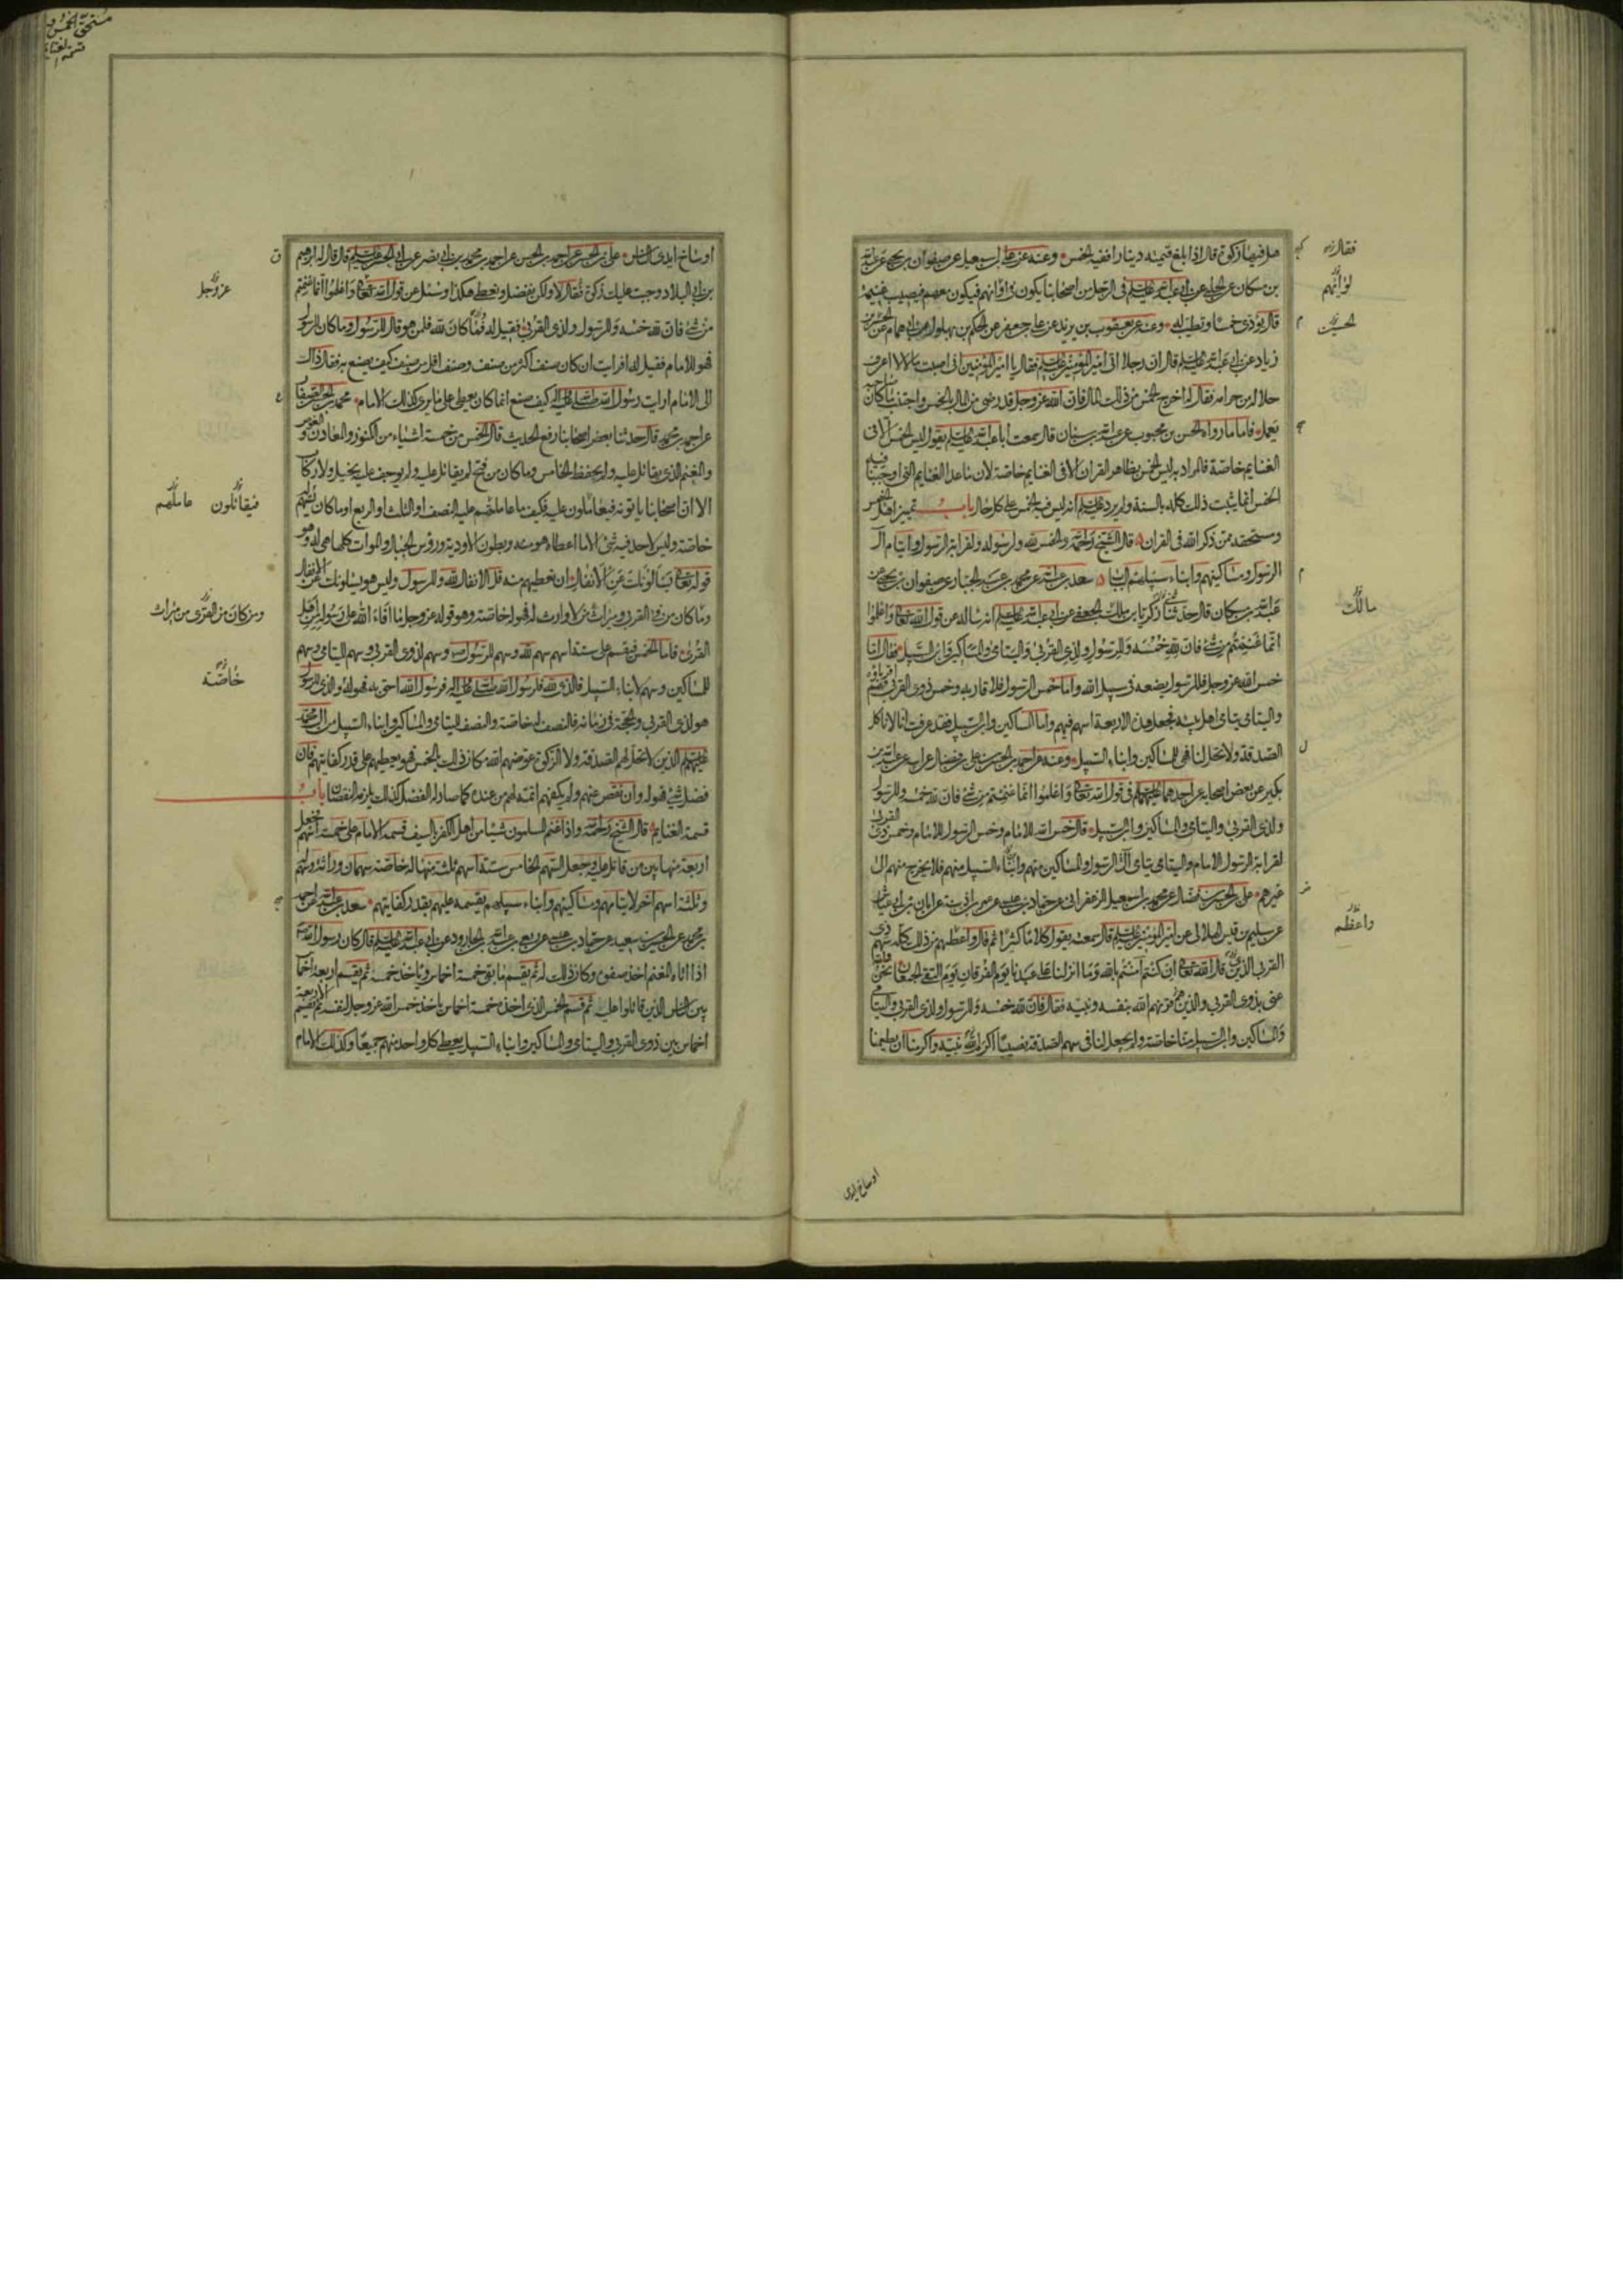 هل فيها زكوة قال اذا بلغ قيمته دينارا ففيه الخمس وعنه عن علي بن اسمعيل عن صفوان بن يحيى عن عبد الله
بن مسكان عن الحلبي عن ابي عبد الله عليه السلم في الرجل من اصحابنا يكون في لوائهم فيكون معهم فيصيب غنيمة
قال يؤدي خمسنا وتطيب له وعنه عن يعقوب بن يزيد عن علي بن جعفر عن الحكم بن بهلول عن ابي همام عن الحسن بن
زياد عن ابي عبد الله عليه السلم قال ان رجلا اتى امير المؤمنين عليه السلم فقال يا امير المؤمنين اني اصبت مالا لا اعرف
حلاله من حرامه فقال له اخرج الخمس من ذالك المال فان الله عزوجل قد رضي من المال بالخمس واجتنب ما كان صاحبه
يعمل فاما ما رواه الحسن بن محبوب عن عبد الله بن سنان قال سمعت ابا عبد الله عليه السلم يقول ليس الخمس الا في
الغنايم خاصة فالمراد به ليس الخمس بظاهر القران الا في الغنايم خاصة لان ما عدا الغنايم التي اوجبنا فيه
الخمس انما يثبت ذلك كله بالسنة ولم يرد عليه السلم انه ليس فيه الخمس على كل حال باب تمييز اهل الخمس
ومستحقه ممن ذكر الله في القران قال الشيخ رحمه الله والخمس لله ولرسوله ولقرابة الرسول وايتام آل
الرسول ومساكينهم وابناء سبيلهم سعد بن عبد الله عن محمد بن عبد الجبار عن صفوان بن يحيى عن
عبد الله بن مسكان قال حدثنا زكريا بن مالك الجعفي عن ابي عبد الله عليه السلم انه سأله عن قول الله تعالى واعلموا
انما غنمتم من شئ فان لله خمسه وللرسول ولذي القربى واليتامى والمساكين وابن السبيل فقال اما
خمس الله عزوجل فللرسول يضعه في سبيل الله واما خمس الرسول فلاقاربه وخمس ذوي القربى فهم اقرباؤه
واليتامى يتامى اهل بيته فجعل هذه الاربعة اسهم فيهم واما المساكين وابن السبيل فقد عرفت انا لا ناكل
الصدقة ولا تحل لنا فهي للمساكين وابناء السبيل وعنه عن احمد بن الحسن بن علي بن فضال عن ابيه عن عبد الله بن
بكير عن بعض اصحابه عن احدهما عليهما السلم في قول الله تعالى واعلموا انما غنمتم من شئ فان لله خمسه وللرسول
ولذي القربى واليتامى والمساكين وابن السبيل قال خمس الله للامام وخمس الرسول للامام وخمس ذوي القربى
لقرابة الرسول الامام واليتامى يتامى آل الرسول والمساكين منهم وابناء السبيل منهم فلا يخرج منهم الى
غيرهم علي بن الحسن بن فضال عن محمد بن اسمعيل الزعفراني عن حماد بن عيسى عن عمر بن اذينة عن ابان بن ابي عياش
عن سليم بن قيس الهلالي عن امير المؤمنين عليه السلم قال سمعته يقول كلاما كثيرا ثم قال واعطهم من ذلك كله سهم ذي
القربى الذين قال الله تعالى ان كنتم امنتم بالله وما انزلنا على عبدنا يوم الفرقان يوم التقى الجمعان نحن والله
عنى بذوي القربى والذين هم قرنهم الله بنفسه ونبيه فقال فان لله خمسه وللرسول ولذي القربى واليتامى
والمساكين وابن السبيل منا خاصة ولم يجعل لنا في سهم الصدقة نصيبا اكرم الله نبيه واكرمنا ان يطعمنا
فقال
لوائهم
الحسين
مالك
واعظم
اوساخ ايدي
اوساخ ايدي الناس علي بن الحسن عن احمد بن الحسن عن احمد بن محمد بن ابي نصر عن ابي الحسن عليه السلم قال قال له ابراهيم
بن ابي البلاد وجبت عليك زكوة فقال لا ولكن يفضل ونعطي هكذا وسئل عن قول الله تعالى واعلموا انما غنمتم
من شئ فان لله خمسه وللرسول ولذي القربى فقيل له فما كان لله فلمن هو قال للرسول وما كان للرسول
فهو للامام فقيل له افرايت ان كان صنف اكثر من صنف وصنف اقل من صنف كيف يصنع به فقال ذاك
الى الامام ارايت رسول الله صلى الله عليه واله كيف صنع انما كان يعطي على ما يرى كذلك الامام محمد بن الحسن الصفار
عن احمد بن محمد قال حدثنا بعض اصحابنا رفع الحديث قال الخمس من خمسة اشياء من الكنوز والمعادن والغوص
والمغنم الذي يقاتل عليه ولم يحفظ الخامس وما كان من فتح لم يقاتل عليه ولم يوجف عليه بخيل ولا ركاب
الا ان اصحابنا ياتونه فيعاملون عليه فكيف ما عاملهم عليه النصف او الثلث او الربع او ما كان يسهم له
خاصة وليس لاحد فيه شئ الا ما اعطاه هو منه وبطون الاودية ورؤس الجبال والموات كلها هي له وهو
قوله تعالى يسألونك عن الانفال ان تعطيهم منه قل الانفال لله وللرسول وليس هو يسألونك عن الانفال
وما كان من في القرى وميراث من لا وارث له فهو له خاصة وهو قوله عزوجل ما افاء الله على رسوله من اهل
القرى فاما الخمس فيقسم على ستة اسهم سهم لله وسهم للرسول وسهم لذوي القربى وسهم لليتامى وسهم
للمساكين وسهم لابناء السبيل فالذي لله فلرسول الله صلى الله عليه واله فرسول الله احق به فهو له والذي للرسول
هو لذي القربى والحجة في زمانه فالنصف له خاصة والنصف لليتامى والمساكين وابناء السبيل من آل محمد
عليهم السلم الذين لا تحل لهم الصدقة ولا الزكوة عوضهم الله مكان ذالك بالخمس فهو يعطيهم على قدر كفايتهم فان
فضل شئ فهو له وان نقص عنهم ولم يكفهم اتمه لهم من عنده كما صار له الفضل كذلك يلزمه النقصان باب
قسمة الغنايم قال الشيخ رحمه الله واذا غنم المسلمون شيئا من اهل الكفر بالسيف قسمه الامام على خمسة اسهم فجعل
اربعة منها بين من قاتل عليه وجعل السهم الخامس ستة اسهم ثلثة منها له خاصة سهمان وراثة وسهم
وثلثة اسهم اخر لايتامهم ومساكينهم وابناء سبيلهم يقسمه عليهم بقدر كفايتهم سعد بن عبد الله عن احمد
بن محمد عن الحسين بن سعيد عن حماد بن عيسى عن ربعي بن عبد الله بن الجارود عن ابي عبد الله عليه السلم قال كان رسول الله
اذا اتاه المغنم اخذ صفوه وكان ذلك له ثم يقسم ما بقي خمسة اخماس وياخذ خمسه ثم يقسم اربعة اخماس
بين الناس الذين قاتلوا عليه ثم قسم الخمس الذي اخذه خمسة اخماس ياخذ خمس الله عزوجل لنفسه ثم يقسم الاربعة
اخماس بين ذوي القربى واليتامى والمساكين وابناء السبيل يعطي كل واحد منهم جميعا وكذلك الامام
عزوجل
فيقاتلون عاملهم
ومن كان من القرى من ميراث
خاصة